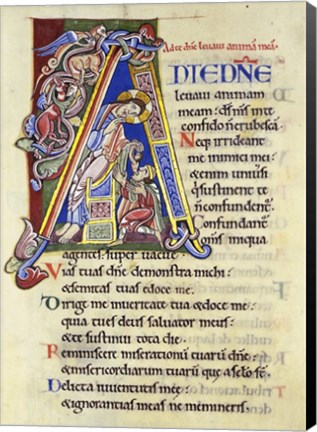 Ad te dn̄e levavi animā meā.
AD TE DN̄E
levavi animam
meam: ds̄ ms̄ in te
confido n̄ erubescā.
Neq; irrideant
me inimici mei:
&enim univsi
q̇ sustinent te
n̄ confundent̄.
Confundant̄
om̄s iniqua
agentes: super vacue.
Vias tuas dn̄e demonstra michi:
&semitas tuas edoce me.
Dirige me inveritate tua &doce me:
quia tu es deus salvator meus:
& te sustinui tota die.
Reminiscere miserationū tuarū dn̄e:
&misericordiarum tuarū que a sc̄lo st̄.
Delicta iuventutis meę:
&ignorantias meas ne memineris.